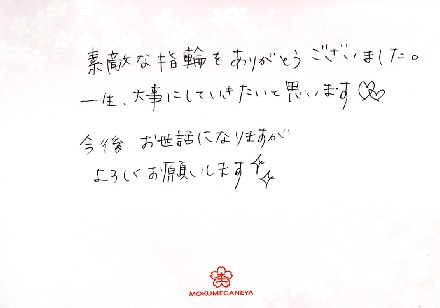 素敵な指輪をありがとうございました。
一生、大事にしていきたいと思います♡♡
今後、お世話になりますが
よろしくお願いします✧✧
MOKUMEGANEYA